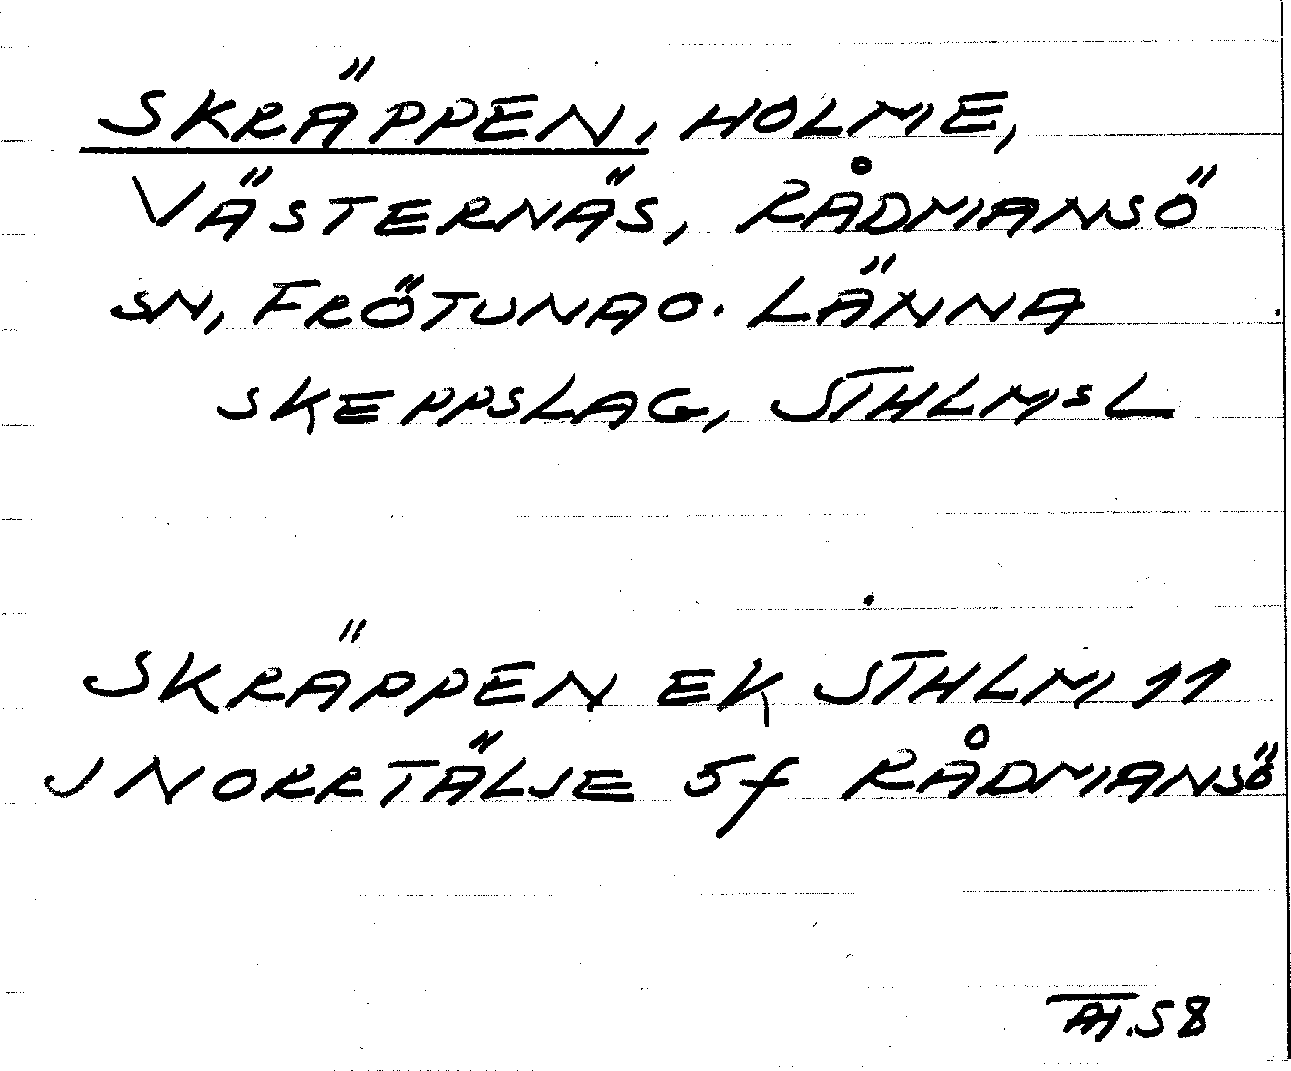 SKRÄPPEN, HOLME,
VÄSTERNÄS, RÅDMANSÖ
SN, FRÖTUNA O. LÄNNA
SKEPPSLAG, STHLMS L
SKRÄPPEN EK STHLM 11
J NORRTÄLJE 5f RÅDMANSÖ
58